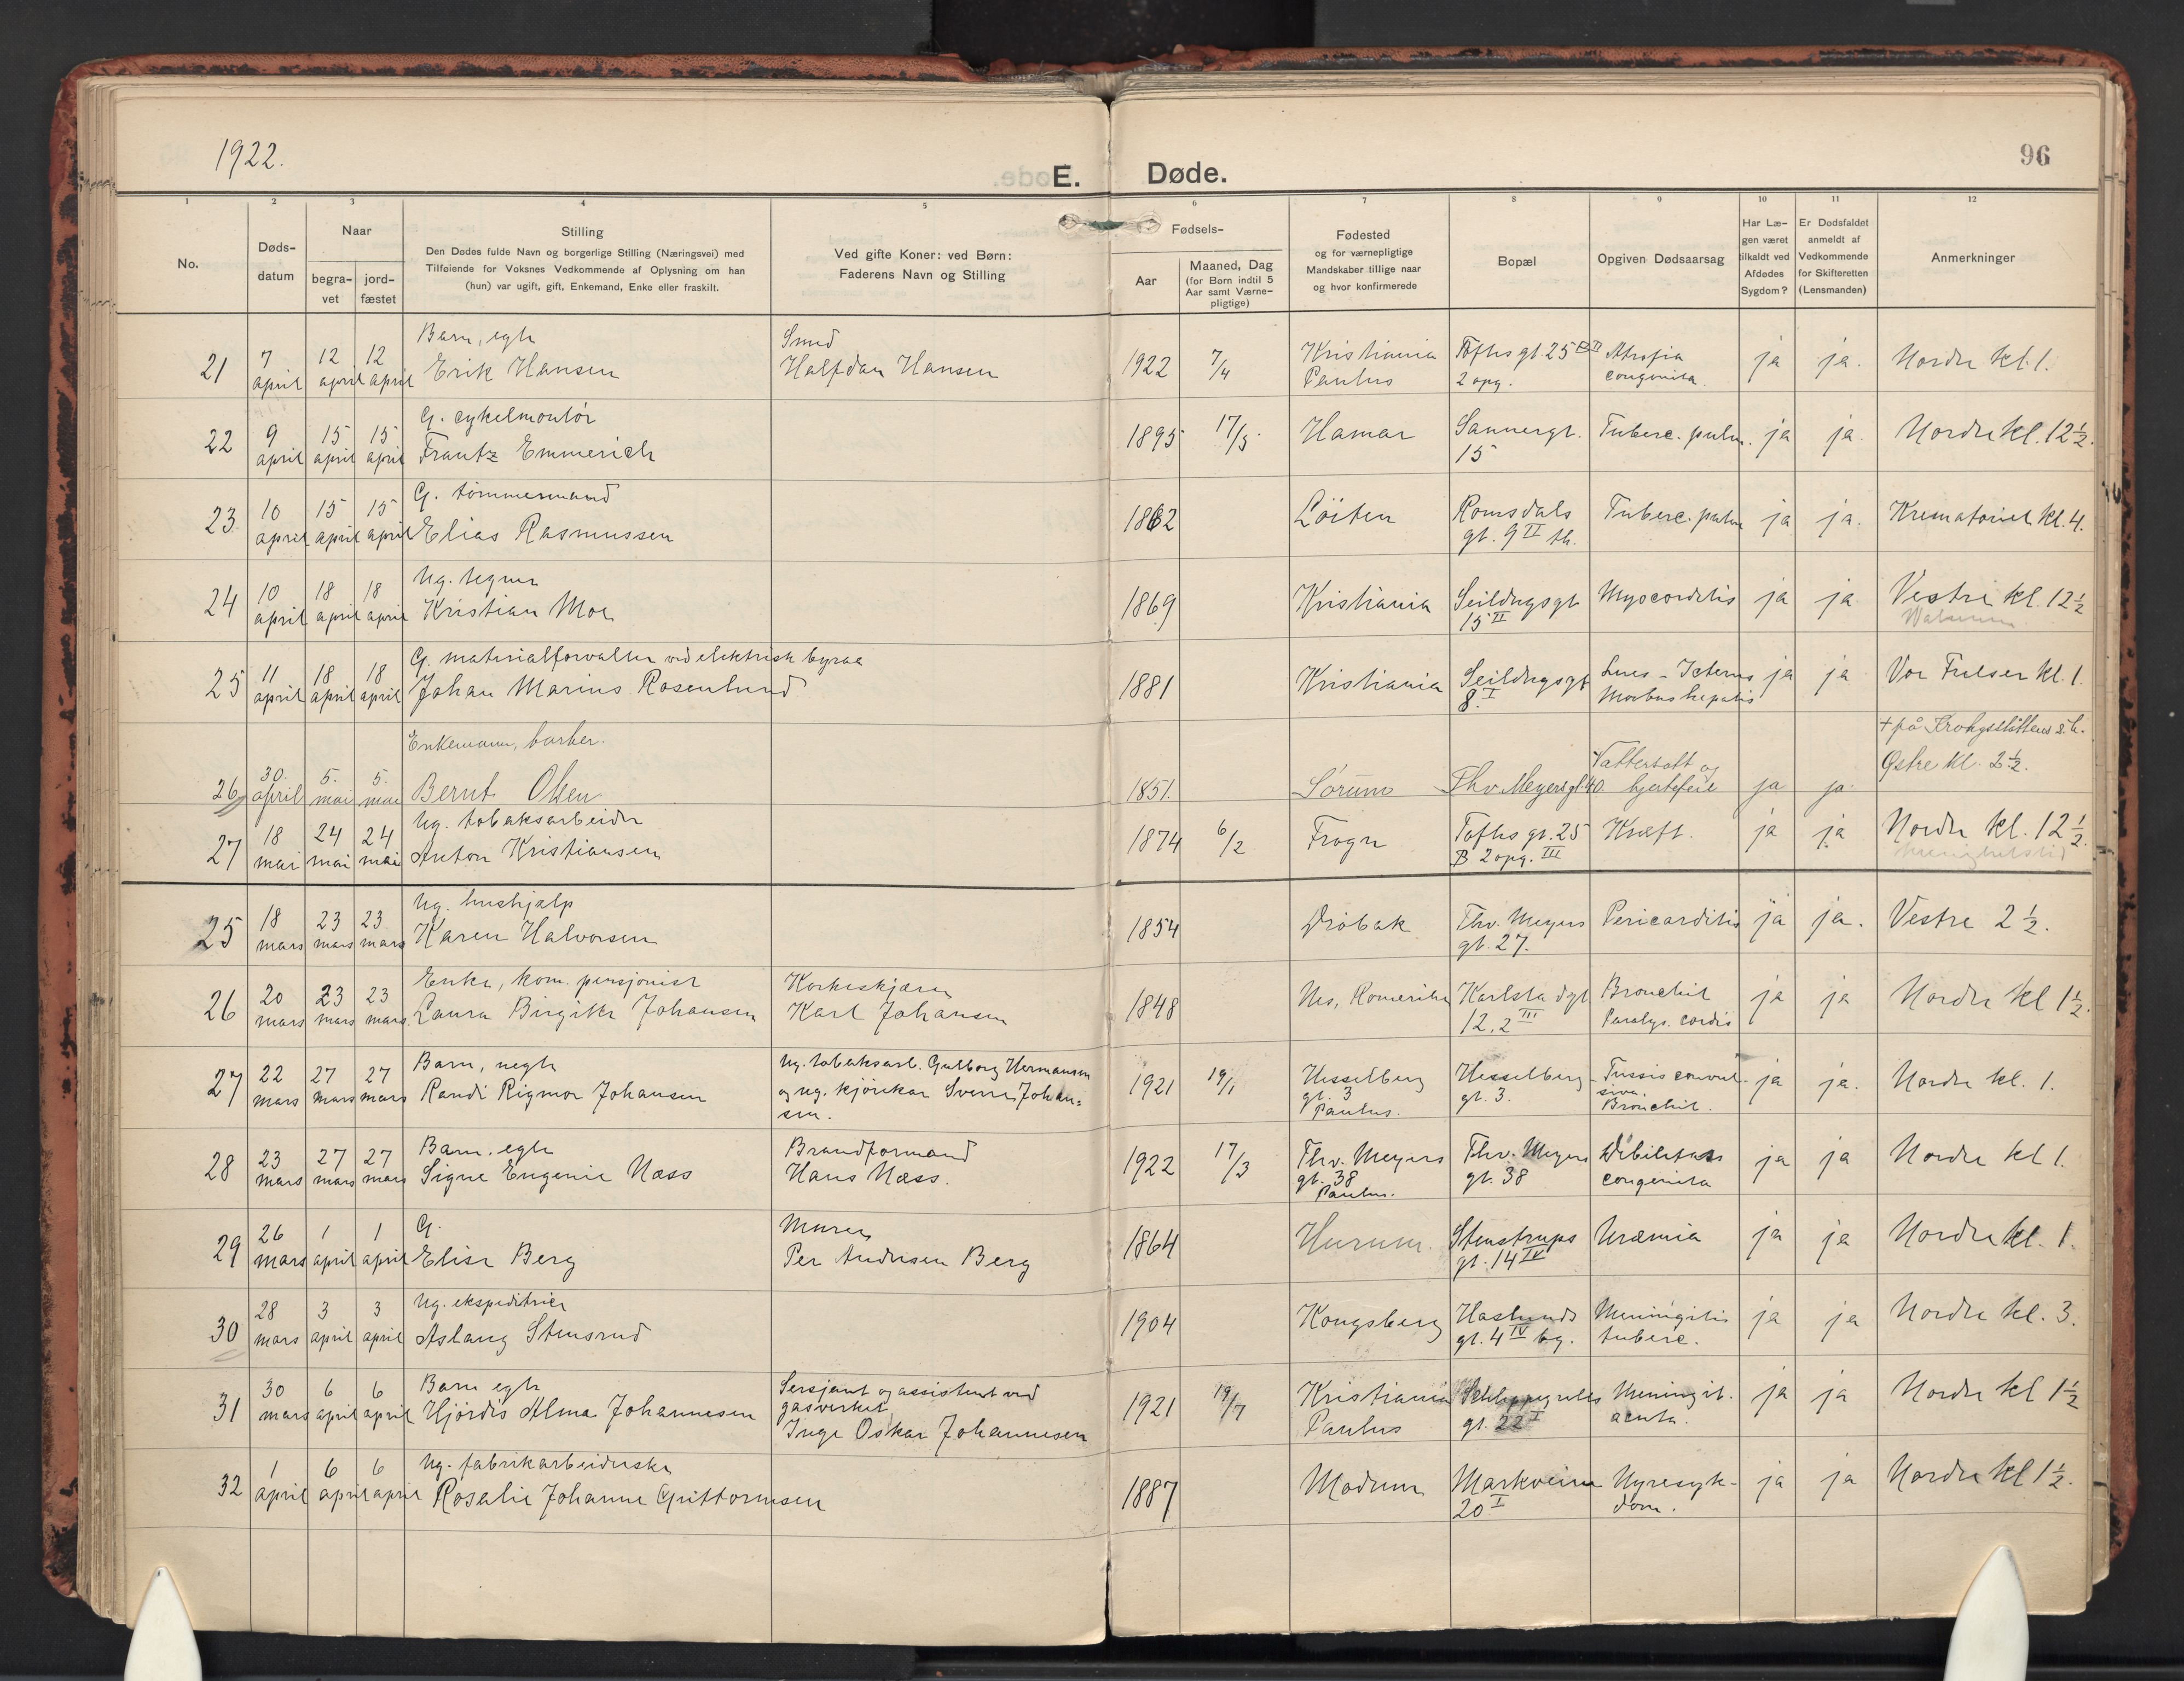 1922.
E. Døde.
96
1 2 3 4 5 6 7 8 9 10 11 12
No.
Døds-
datum
Naar
begra-
vet
jord-
fæstet
Stilling
Den Dødes fulde Navn og borgerlige Stilling (Næringsvei) med
Tilføiende for Voksnes Vedkommende af Oplysning om han
(hun) var ugift, gift, Enkemand, Enke eller fraskilt.
Ved gifte Koner: ved Børn:
Faderens Navn og Stilling
Fødsels-
Aar
Maaned, Dag
(for Børn indtil 5
Aar samt Værne-
pligtige)
Fødested
og for værnepligtige
Mandskaber tillige naar
og hvor konfirmerede
Bopæl
Opgiven Dødsaarsag
Har Læ-
gen været
tilkaldt ved
Afdødes
Sygdom?
Er Dødsfaldet
anmeldt af
Vedkommende
for Skifteretten
(Lensmanden)
Anmerkninger
Barn, egte Smed
21 7 12 12 Erik Hansen Halfdan Hansen 1922 7/4 Kristiania Toftes gt. 25 Atrofia ja ja. Nordre kl. 1.
april april april Paulus 2 opg. congenita.
G. cykelmontör
22 9 15 15 Frantz Emmerich 1895 17/5 Hamar Sannergt. Tuberc. pulm. ja ja. Nordre kl. 12½.
april april april 15
G. tömmermand
23 10 15 15 Elias Rasmussen 1862 Löiten Romsdals Tuberc. pulm ja ja. Krematoriet kl. 4.
april april april gt. 9 II th.
Ug. tegner
24 10 18 18 Kristian Moe 1869 Kristiania Seildugsgt Myocarditis ja ja Vestre kl. 12½
april april april 15 II
G. materialforvalter ved elektrisk byraa
25 11 18 18 Johan Marius Rosenlund 1881 Kristiania Seildugsgt Lues - Icterus ja ja Vor Frelser kl. 1.
april april april 8 I Morbus hepatis
Enkemann, barber. + på Krohgstøttens s.h.
26 30. 5. 5. Bernt Olsen 1851. Sörum Thv. Meyersgt. 40. Vattersott og ja ja. Østre kl. 2½.
april mai mai hjertefeil
Ug. tobaksarbeider
27 18 24 24 Anton Kristiansen 1874 6/2 Frogn Toftes gt. 25 Kræft. ja ja Nordre kl. 12½.
mai mai mai B 2 opg. III
Ug. hushjælp
25 18 23 23 Karen Halvorsen 1854 Dröbak Thv. Meyers Pericarditis ja ja. Vestre 2½.
mars mars mars gt. 27.
Enke, kom. pensjonist Korkeskjærer
26 20 23 23 Laura Birgitte Johansen Karl Johansen 1848 Nes, Romerike Karlstadgt Bronchit ja ja Nordre kl 1½.
mars mars mars 12, 2 III Paralys. cordis
Barn, uegte Ug. tobaksarb. Gulborg Hermansen
27 22 27 27 Randi Rigmor Johansen og ug. kjörekar Sverre Johan= 1921 19/1 Hesselberg Hesselberg- Tussis convul- ja ja. Nordre kl. 1.
mars mars mars sen. gt. 3 gt. 3. siva.
Paulus. Bronchit.
Barn. egte Brandformand
28 23 27 27 Signe Eugenie Næss Hans Næss. 1922 17/3 Thv. Meyers Thv. Meyers Debilitas ja ja Nordre kl 1.
mars mars mars gt. 38 gt. 38 congenita
Paulus.
G. Murer
29 26 1 1 Elise Berg Per Andersen Berg 1864 Hurum. Stenstrups Uræmia ja ja Nordre kl. 1.
mars april april gt. 14 IV
Ug. ekspeditrice
30 28 3 3 Aslaug Stensrud 1904 Kongsberg Haslunds Meningitis ja ja Nordre kl. 3.
mars april april gt. 4 IV bg. tuberc.
Barn egte Sersjant og assistent ved
31 30 6 6 Hjördis Alma Johannesen gasverket 1921 19/7 Kristiania Schleppegrells Meningit. ja ja Nordre kl 1½
mars april april Inge Oskar Johannesen Paulus gt. 22 I acuta.
Ug. fabrikarbeiderske
32 1 6 6 Rosalie Johanne Guttormsen 1887 Modum Markveien Nyresyk- ja ja Nordre kl 1½.
april april april 20 I dom.